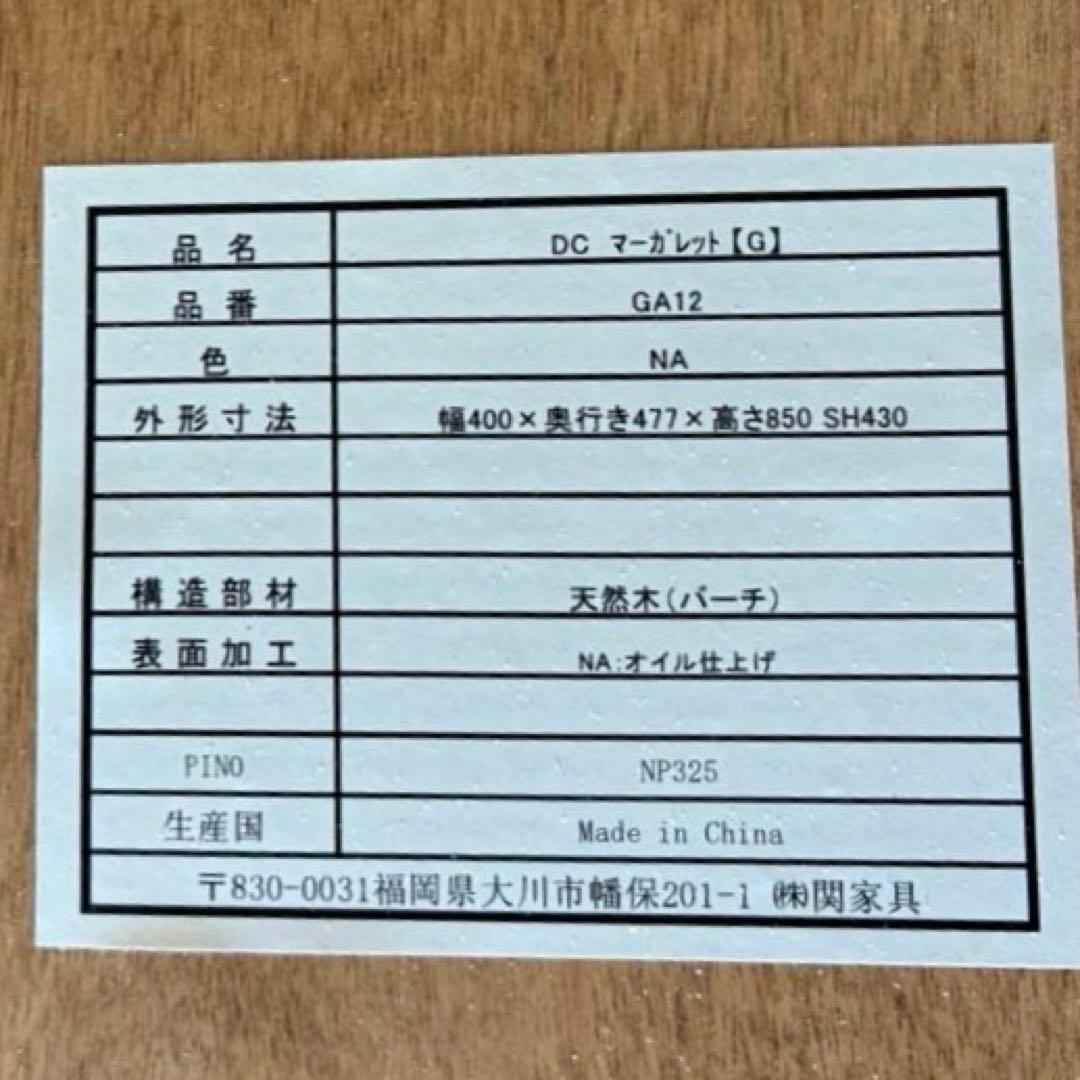 品名 DC マーガレット【G】
品番 GA12
色 NA
外形寸法 幅400×奥行き477×高さ850 SH430
構造部材 天然木(バーチ)
表面加工 NA:オイル仕上げ
PINO NP325
生産国 Made in China
〒830-0031福岡県大川市幡保201-1 ㈱関家具